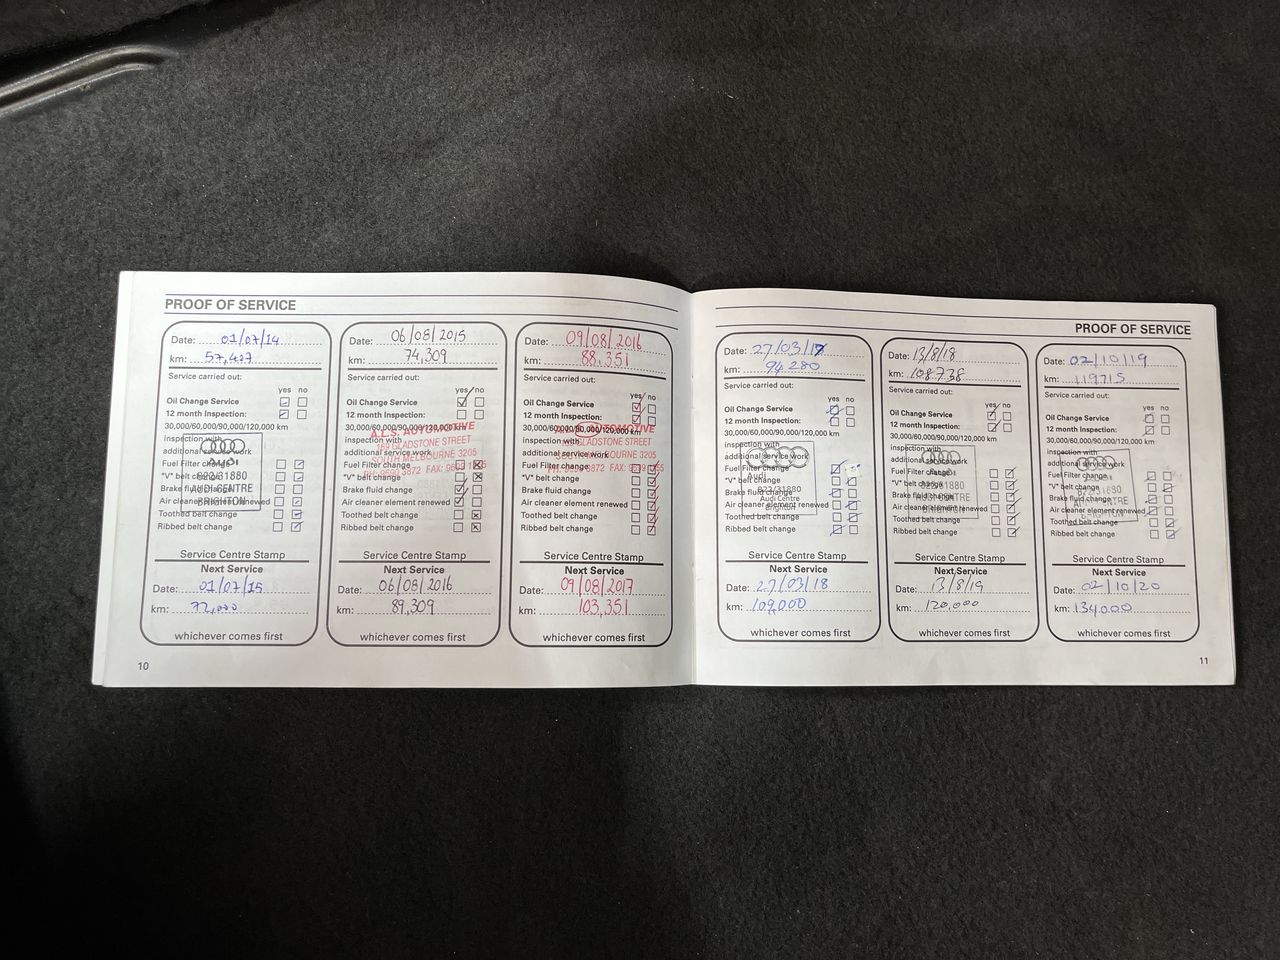 PROOF OF SERVICE
Date: 01/07/14
km: 57,407
Service carried out:
yes no
Oil Change Service
12 month Inspection:
30,000/60,000/90,000/120,000 km
inspection with
additional service work
Fuel Filter change
"V" belt change
Brake fluid change
Air cleaner element renewed
Toothed belt change
Ribbed belt change
Audi
822/31880
AUDI CENTRE
BRIGHTON
Service Centre Stamp
Next Service
Date: 01/07/15
km: 72,000
whichever comes first
Date: 06/08/2015
km: 74,309
Service carried out:
yes no
Oil Change Service
12 month Inspection:
30,000/60,000/90,000/120,000 km
inspection with
additional service work
Fuel Filter change
"V" belt change
Brake fluid change
Air cleaner element renewed
Toothed belt change
Ribbed belt change
A.L.S. AUTOMOTIVE
169 GLADSTONE STREET
SOUTH MELBOURNE 3205
Service Centre Stamp
Next Service
Date: 06/08/2016
km: 89,309
whichever comes first
Date: 09/08/2016
km: 88,351
Service carried out:
yes no
Oil Change Service
12 month Inspection:
30,000/60,000/90,000/120,000 km
inspection with
additional service work
Fuel Filter change
"V" belt change
Brake fluid change
Air cleaner element renewed
Toothed belt change
Ribbed belt change
AUTOMOTIVE
GLADSTONE STREET
MELBOURNE 3205
Service Centre Stamp
Next Service
Date: 09/08/2017
km: 103,351
whichever comes first
10
PROOF OF SERVICE
Date: 27/03/17
km: 94280
Service carried out:
yes no
Oil Change Service
12 month Inspection:
30,000/60,000/90,000/120,000 km
inspection with
additional service work
Fuel Filter change
"V" belt change
Brake fluid change
Air cleaner element renewed
Toothed belt change
Ribbed belt change
Audi
822/31880
Audi Centre
Brighton
Service Centre Stamp
Next Service
Date: 27/03/18
km: 109,000
whichever comes first
Date: 13/8/18
km: 108738
Service carried out:
yes no
Oil Change Service
12 month Inspection:
30,000/60,000/90,000/120,000 km
inspection with
additional service work
Fuel Filter change
"V" belt change
Brake fluid change
Air cleaner element renewed
Toothed belt change
Ribbed belt change
Service Centre Stamp
Next Service
Date: 13/8/19
km: 120,000
whichever comes first
Date: 02/10/19
km: 119715
Service carried out:
yes no
Oil Change Service
12 month Inspection:
30,000/60,000/90,000/120,000 km
inspection with
additional service work
Fuel Filter change
"V" belt change
Brake fluid change
Air cleaner element renewed
Toothed belt change
Ribbed belt change
Service Centre Stamp
Next Service
Date: 02/10/20
km: 134000
whichever comes first
11